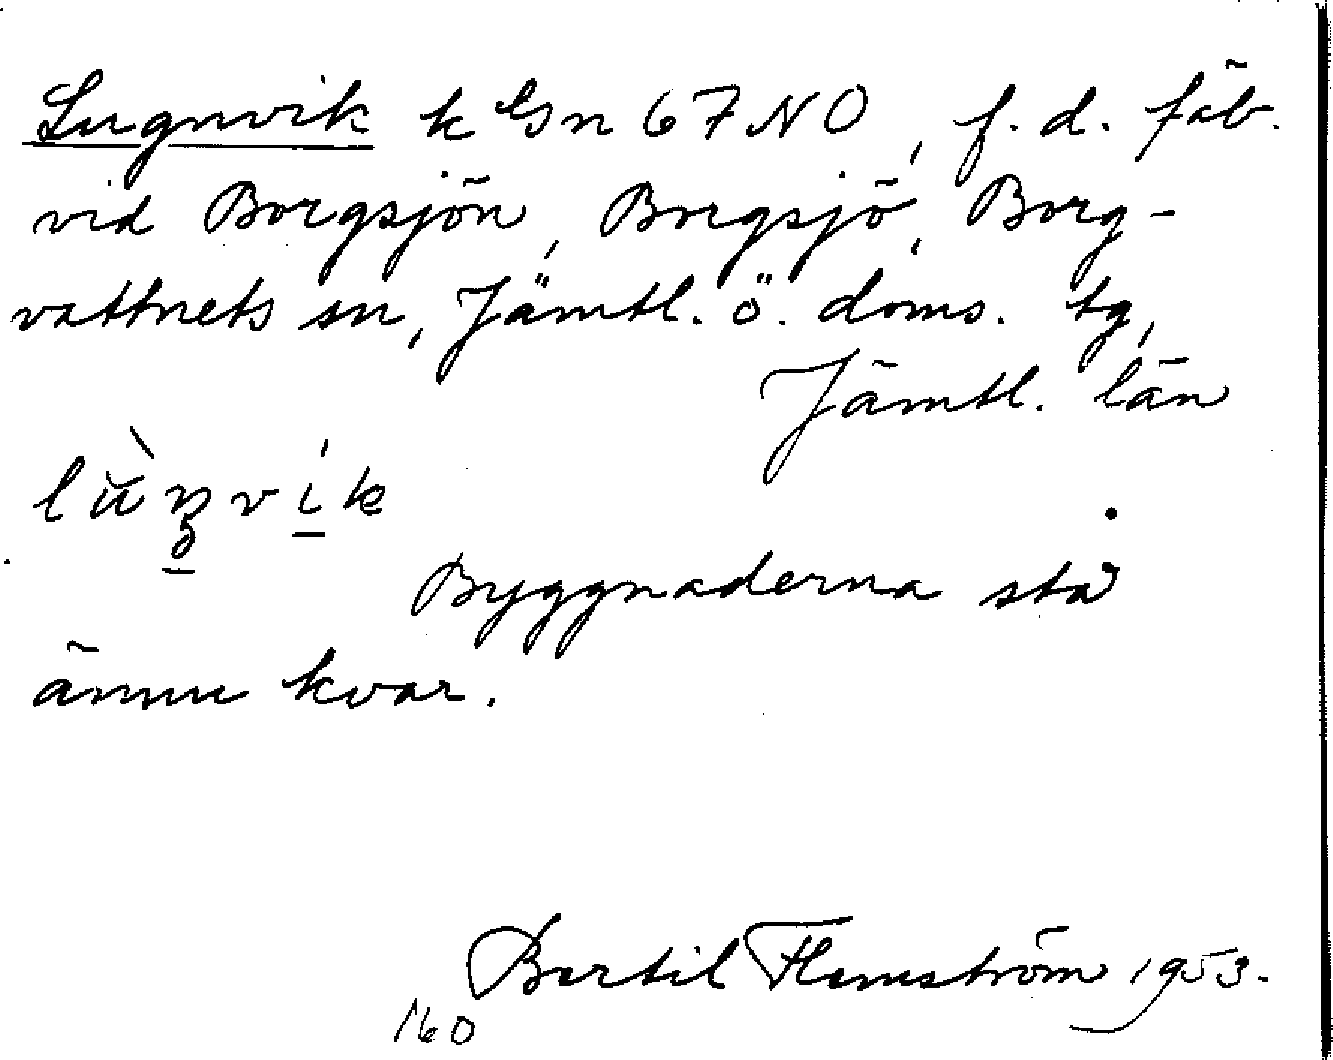 Lugnvik k Gn 67 NO, f. d. fäb.
vid Borgsjön, Borgsjö, Borg-
vattnets sn, Jämtl. ö. doms. tg,
Jämtl. län
Byggnaderna stå
ännu kvar.
Bertil Flemström 1953.
160